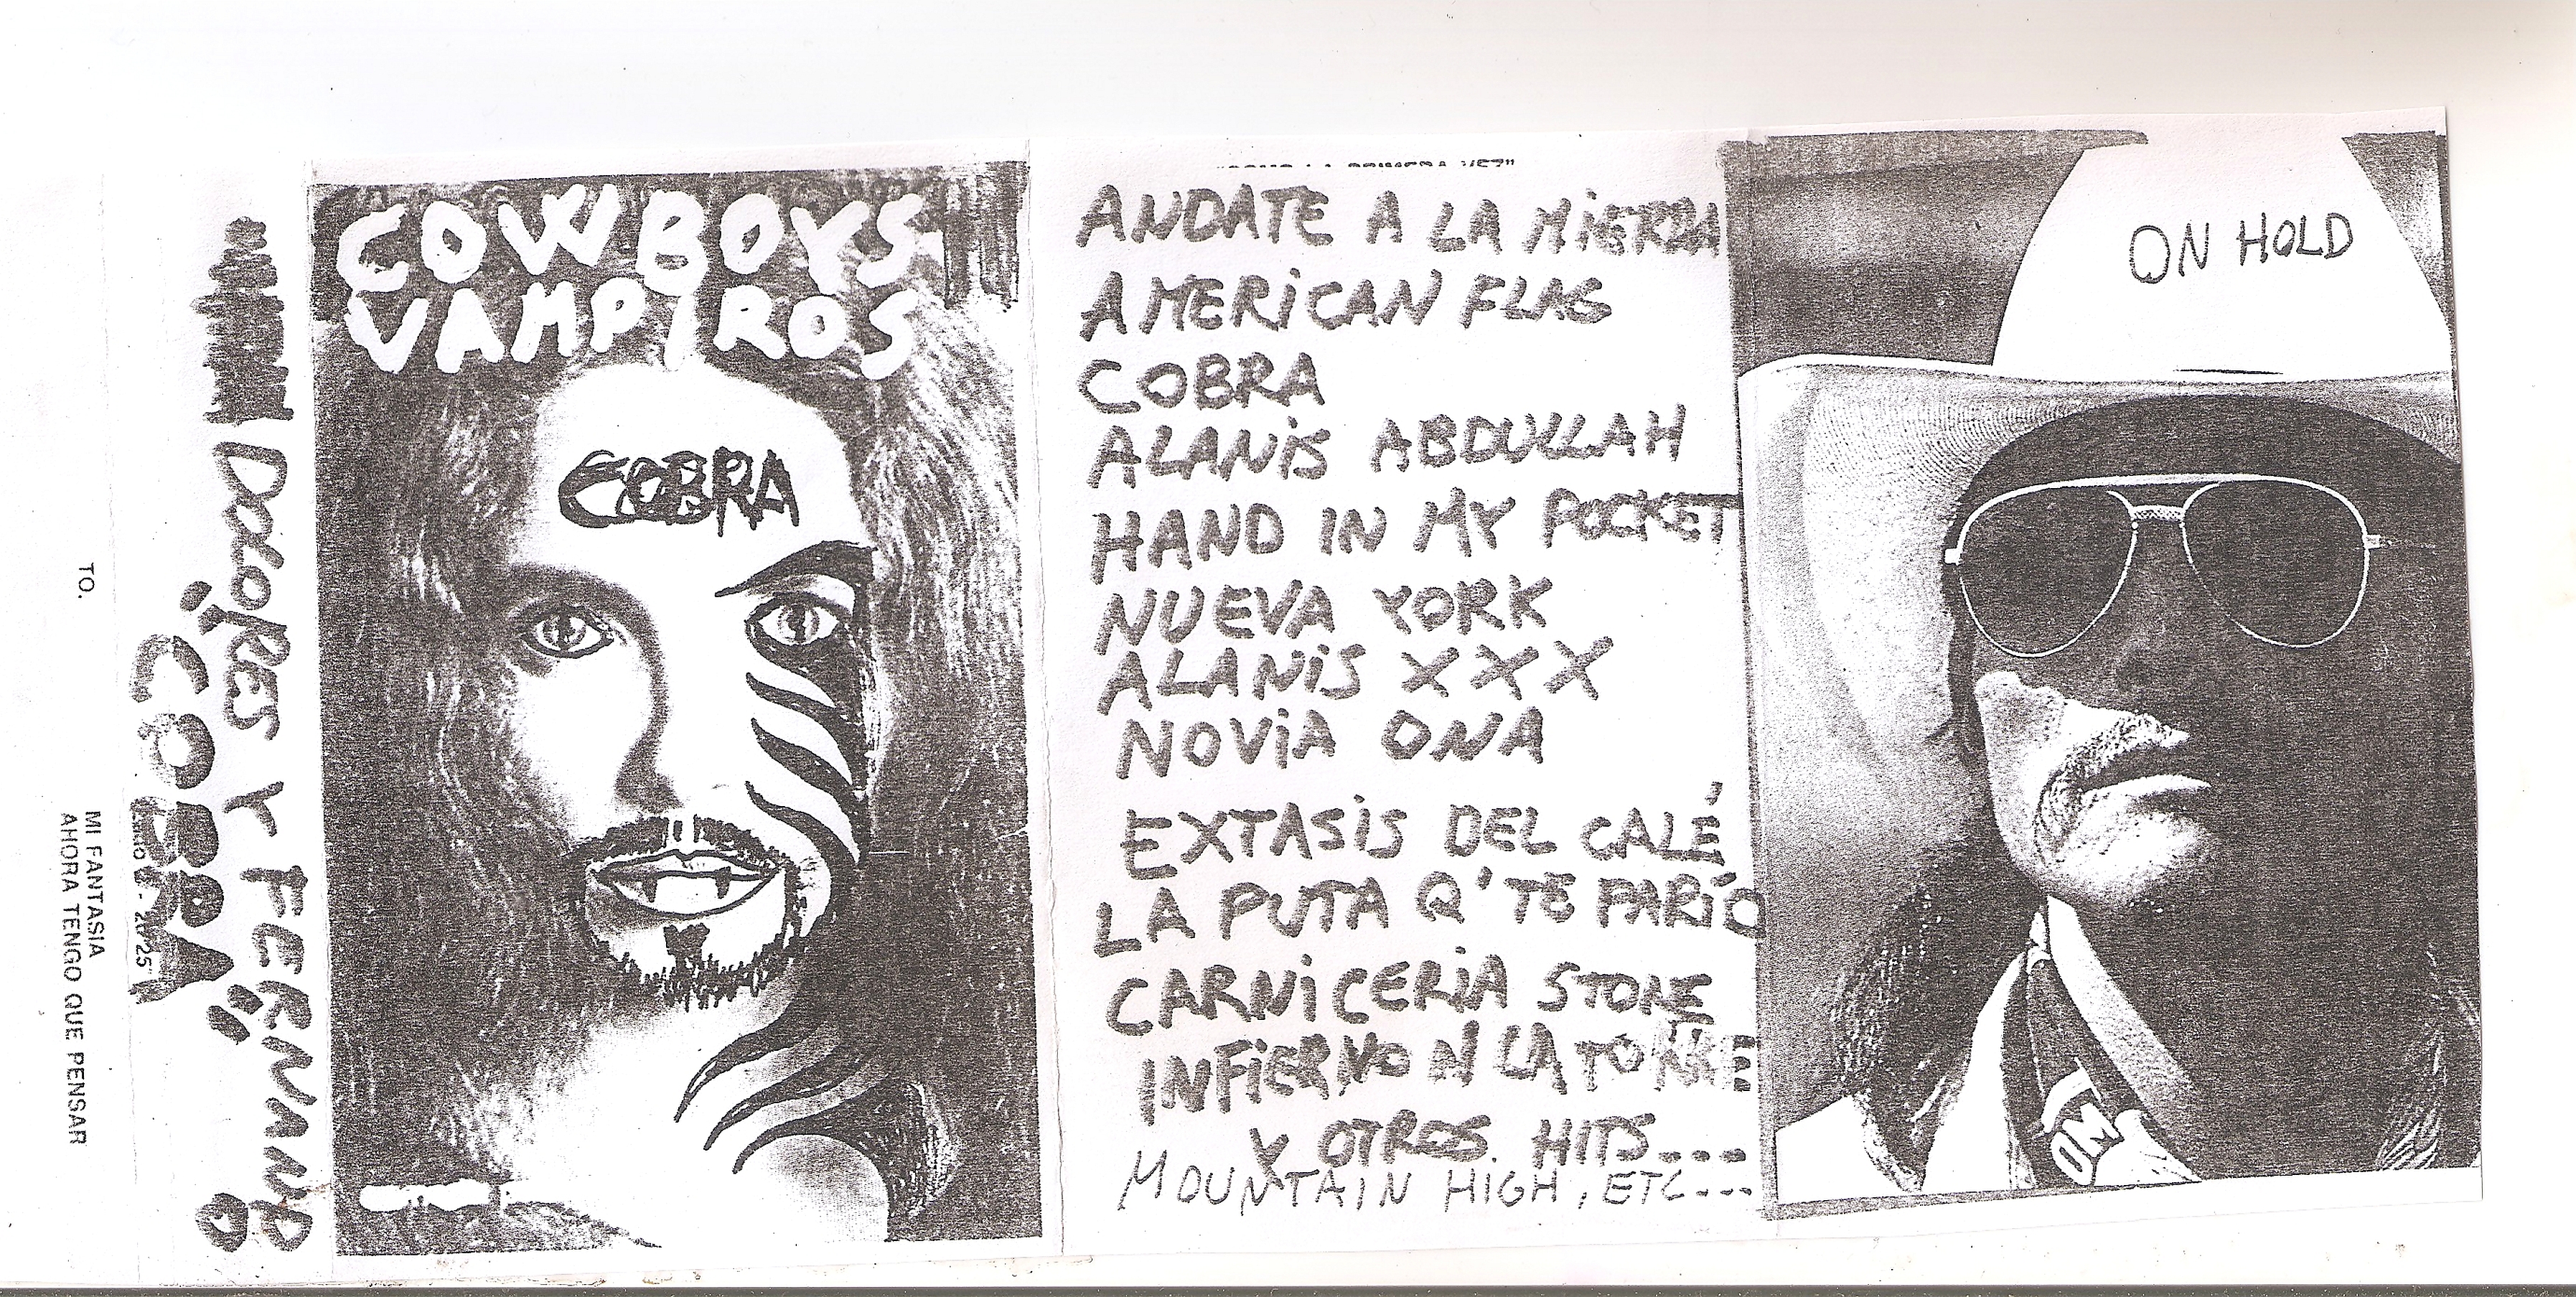 TO.
MI FANTASIA
AHORA TENGO QUE PENSAR
¡COBRA!
DOLORES Y FERNANDO
COWBOYS
VAMPIROS
COBRA
ANDATE A LA MIERDA
AMERICAN FLAG
COBRA
ALANIS ABDULLAH
HAND IN MY POCKET
NUEVA YORK
ALANIS XXX
NOVIA ONA
EXTASIS DEL CALÉ
LA PUTA Q' TE PARÍO
CARNICERIA STONE
INFIERNO N LA TORRE
Y OTROS HITS...
MOUNTAIN HIGH, ETC...
ON HOLD